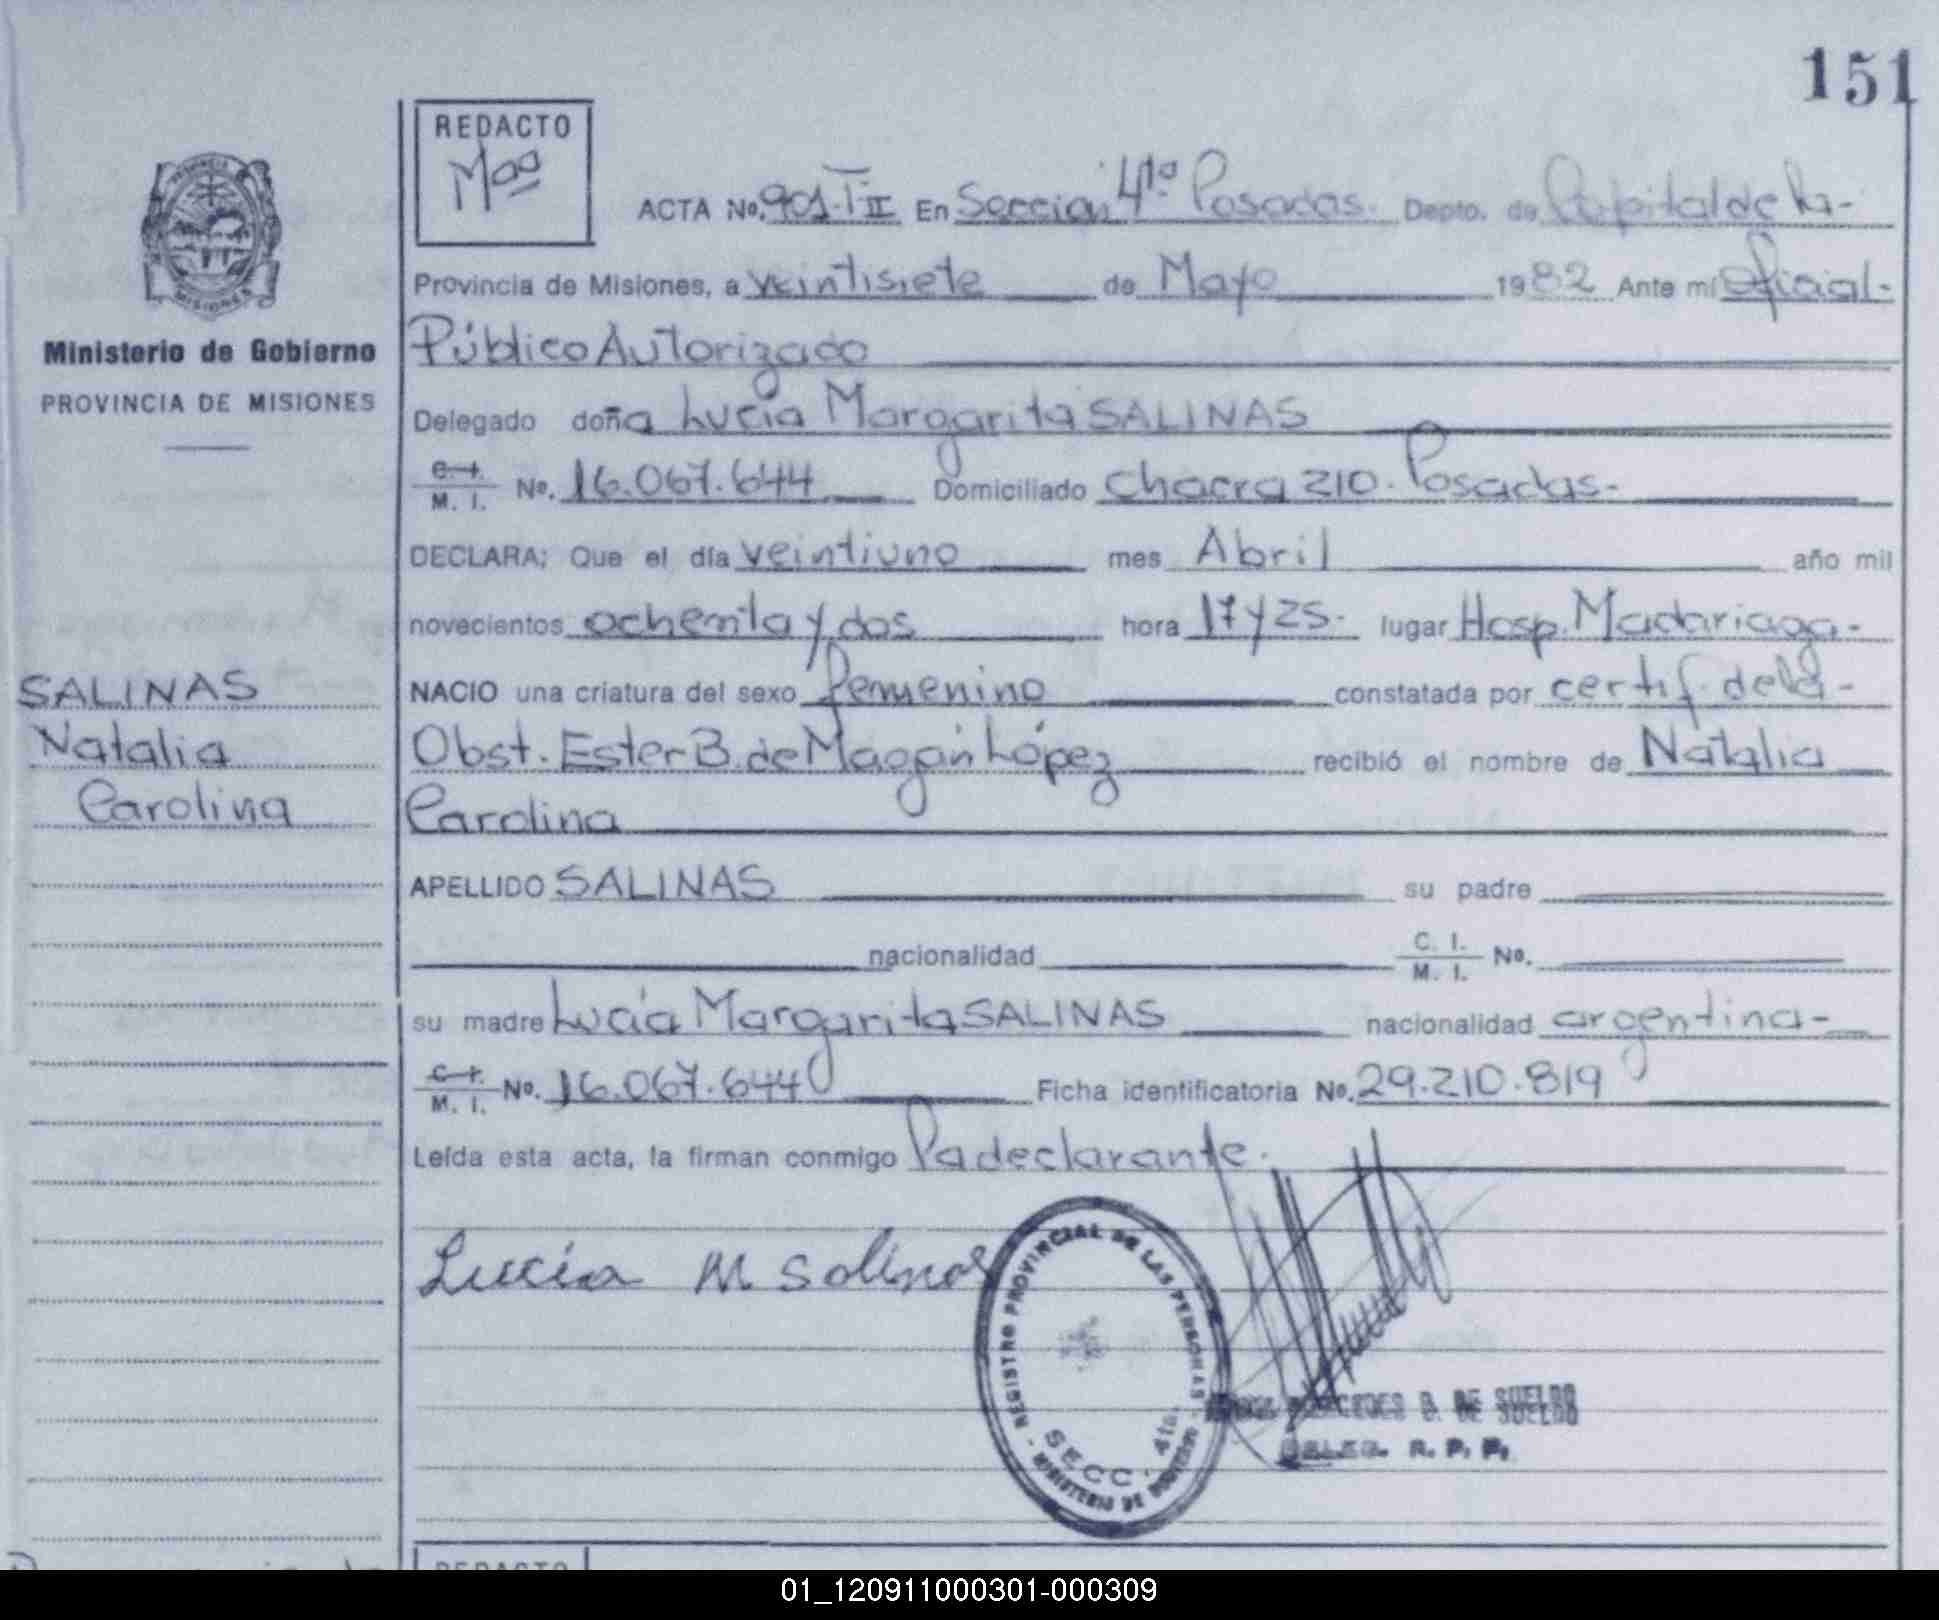 151
REDACTO
Mªª
ACTA No. 901-T-II En Sección 4ta Posadas. Depto. de Capital de la-
Provincia de Misiones, a veintisiete de Mayo 1982 Ante mí Oficial-
Público Autorizado
Delegado doña Lucía Margarita SALINAS
C. I. M. I. No. 16.067.644 Domiciliado Chacra 210. Posadas-
DECLARA; Que el día veintiuno mes Abril año mil
novecientos ochenta y dos hora 17 y 25- lugar Hosp. Madariaga-
NACIO una criatura del sexo femenino constatada por certif. de la-
Obst. Ester B. de Magán López recibió el nombre de Natalia
Carolina
APELLIDO SALINAS su padre
nacionalidad C. I. M. I. No.
su madre Lucía Margarita SALINAS nacionalidad argentina-
C. I. M. I. No. 16.067.644 Ficha identificatoria No. 29.210.819
Leída esta acta, la firman conmigo la declarante.
Lucía M Salinas
REGISTRO PROVINCIAL DE LAS PERSONAS - MINISTERIO DE GOBIERNO -
SECC. 4ta.
MERCEDES B. DE SUELDO
DELEG. R. P. P.
PROVINCIA
MISIONES
Ministerio de Gobierno
PROVINCIA DE MISIONES
SALINAS
Natalia
Carolina
REDACTO
01_120911000301-000309